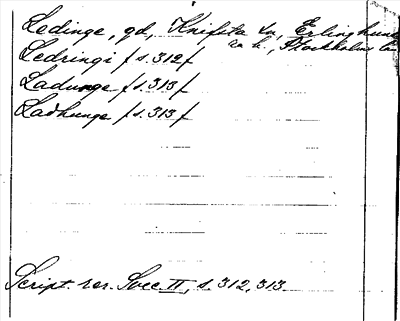 Ledinge, gd, Knifsta sn, Erlinghundra
h., Stockholms län
Ledringi / s. 312 /
Ladunge / s. 313 /
Ladhunge / s. 313 /
Script. rer. Svec. II, s. 312, 313